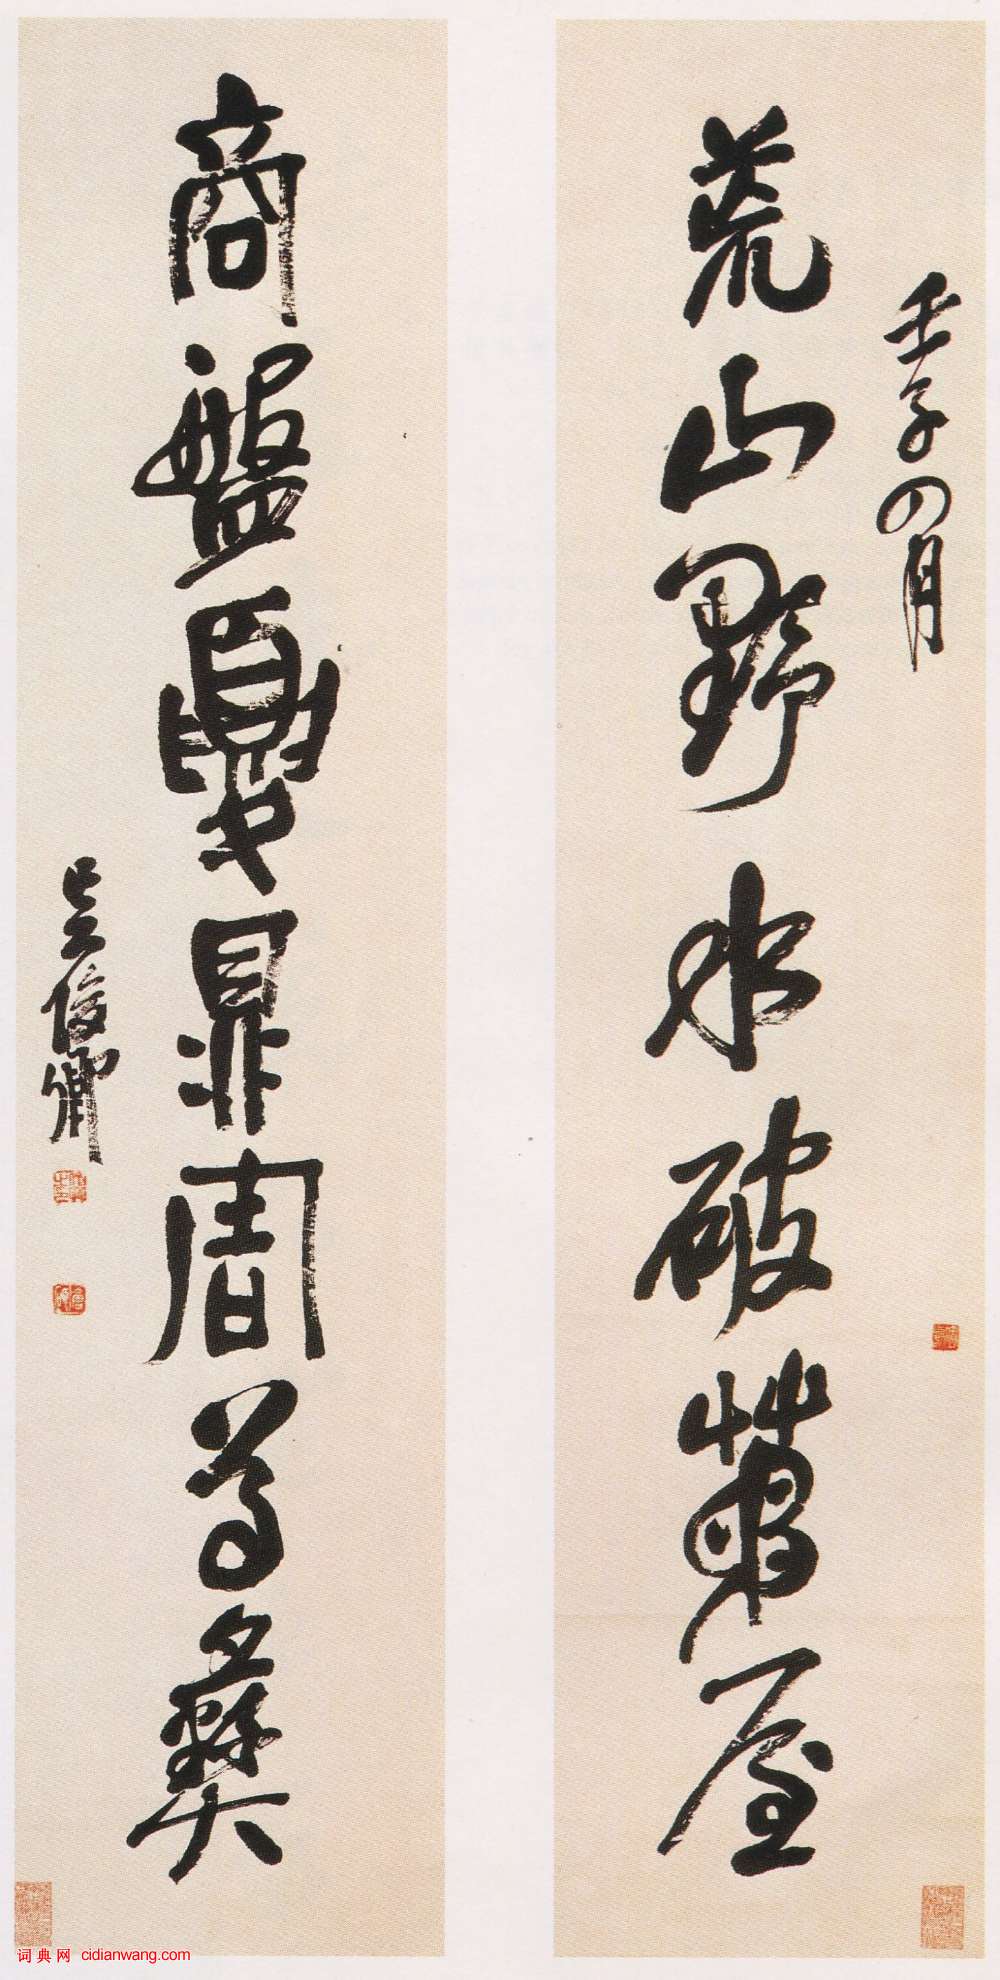 壬子四月
荒山野水破茅屋
商盤夏鼎周尊彝
吳俊卿
词典网 cidianwang.com